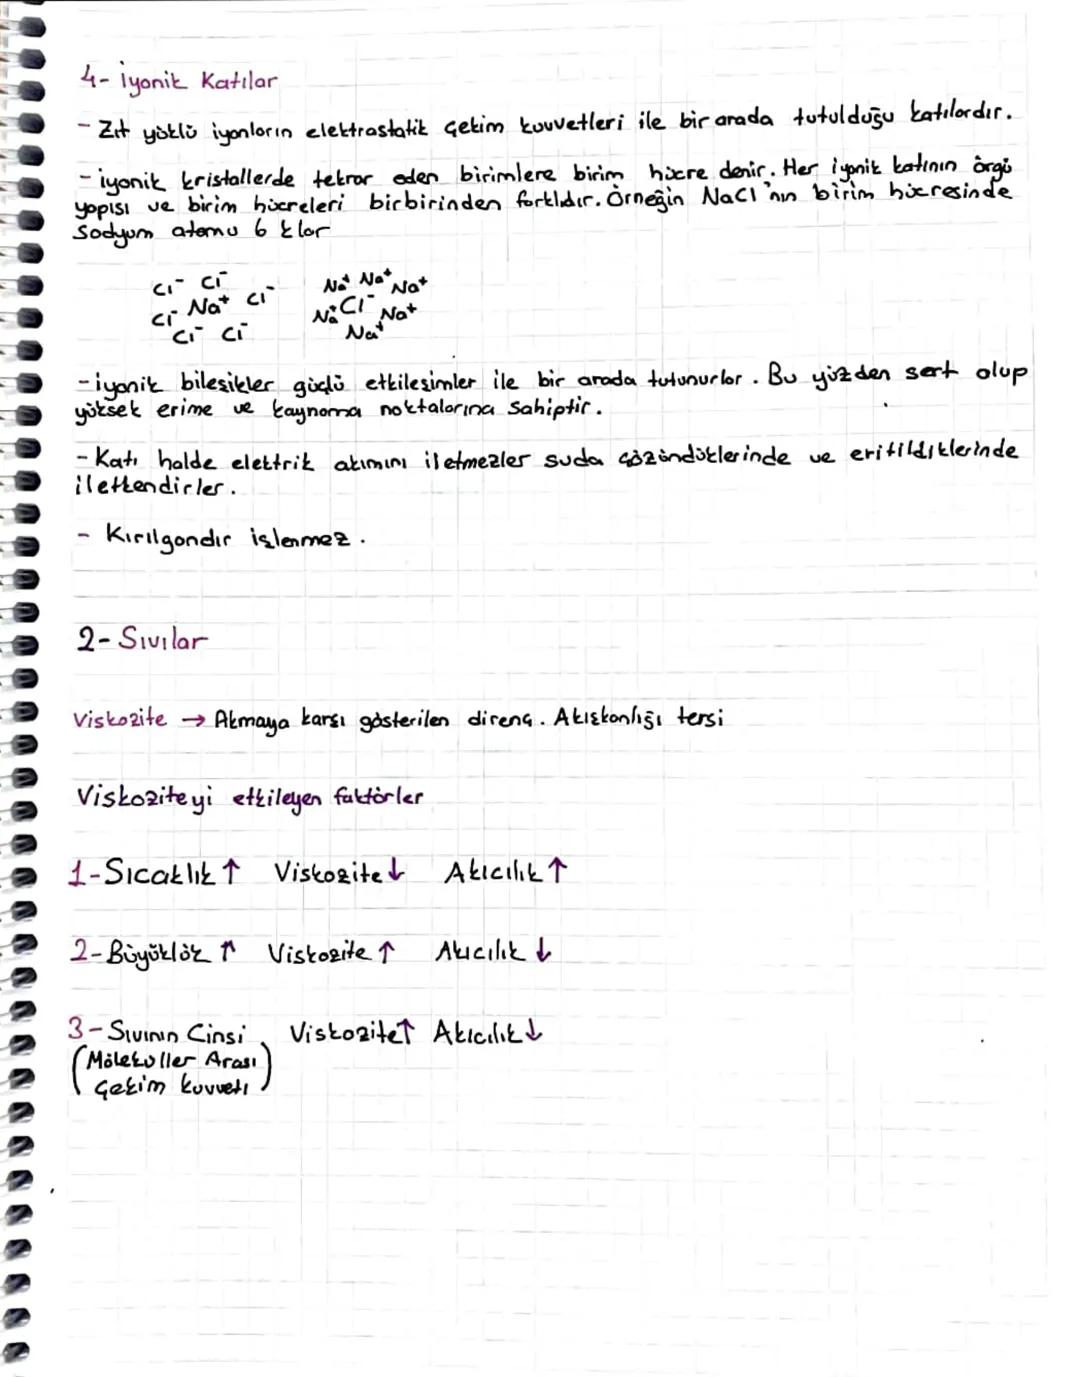 4- İyonik Katılar
- Zıt yüklü iyonların elektrostatik çekim kuvvetleri ile bir arada tutulduğu katılardır.
- iyonik kristallerde tekrar eden birimlere birim hücre denir. Her iyonik katının örgü
yapısı ve birim hücreleri birbirinden farklıdır. Örneğin NaCl'nın birim hücresinde
Sodyum atomu 6 klor
Cl⁻ Cl⁻ Na⁺ Na⁺ Na⁺
Cl⁻ Na⁺ Cl⁻ Na⁺ Cl⁻ Na⁺
Cl⁻ Cl⁻ Na⁺
- iyonik bileşikler güçlü etkileşimler ile bir arada tutunurlar. Bu yüzden sert olup
yüksek erime ve kaynama noktalarına sahiptir.
- Katı halde elektrik akımını iletmezler suda çözündüklerinde ve eritildiklerinde
iletkendirler.
- Kırılgandır işlenmez.
2- Sıvılar
Viskozite → Akmaya karşı gösterilen direnç. Akışkanlığı tersi
Viskoziteyi etkileyen faktörler
1- Sıcaklık ↑ Viskozite ↓ Akıcılık ↑
2- Büyüklük ↑ Viskozite ↑ Akıcılık ↓
3- Sıvının Cinsi Viskozite ↑ Akıcılık ↓
(Moleküller Arası
Çekim kuvveti)